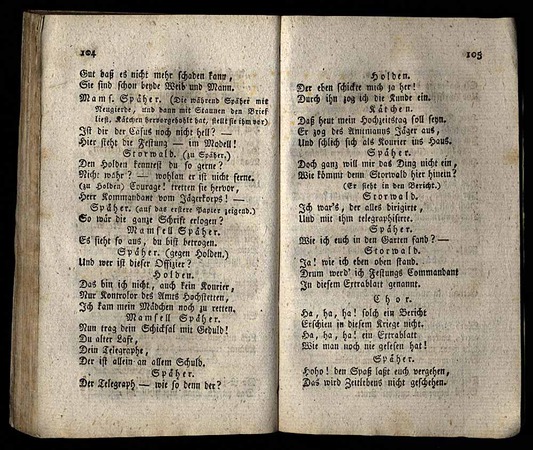 104
Gut daß es nicht mehr schaden kann,
Sie sind schon beyde Weib und Mann.
Mams. Späher. (Die während Späher mit
Neugierde, und dann mit Staunen den Brief
ließt, Kätchen hervorgeholt hat, stellt sie ihm vor)
Ist dir der Casus noch nicht hell? —
Hier steht die Festung — im Modell!
Storwald. (zu Späher.)
Den Holden kanntest du so gerne?
Nicht wahr? — wohlan er ist nicht ferne.
(zu Holden) Courage! tretten sie hervor,
Herr Kommandant vom Jägerkorps! —
Späher. (auf das erstere Papier zeigend.)
So wär die ganze Schrift erlogen?
Mamsell Späher.
Es sieht so aus, du bist betrogen.
Späher. (gegen Holden.)
Und wer ist dieser Offizier?
Holden.
Das bin ich nicht, auch kein Kourier,
Nur Kontrolor des Amts Hochstetten,
Ich kam mein Mädchen noch zu retten.
Mamsell Späher.
Nun trag dein Schicksal mit Geduld!
Du alter Lafe,
Dein Telegraphe,
Der ist allein an allem Schuld.
Späher.
Der Telegraph — wie so denn der?
105
Holden.
Der eben schickte mich ja her!
Durch ihn zog ich die Kunde ein.
Kätchen.
Daß heut mein Hochzeitstag soll seyn.
Er zog des Amtmanns Jäger aus,
Und schlich sich als Kourier ins Haus.
Späher.
Doch ganz will mir das Ding nicht ein,
Wie kömmt denn Storwald hier hinein?
(Er sieht in den Bericht.)
Storwald.
Ich war's, der alles dirigirte,
Und mit ihm telegraphisirte.
Späher.
Wie ich euch in den Garten fand? —
Storwald.
Ja! wie ich eben oben stand.
Drum werd' ich Festungs Commandant
In diesem Extrablatt genannt.
Chor.
Ha, ha, ha! solch ein Bericht
Erschien in diesem Kriege nicht.
Ha, ha, ha! ein Extrablatt
Wie man noch nie gelesen hat!
Späher.
Hoho! den Spaß laßt euch vergehen,
Das wird Zeitlebens nicht geschehen.